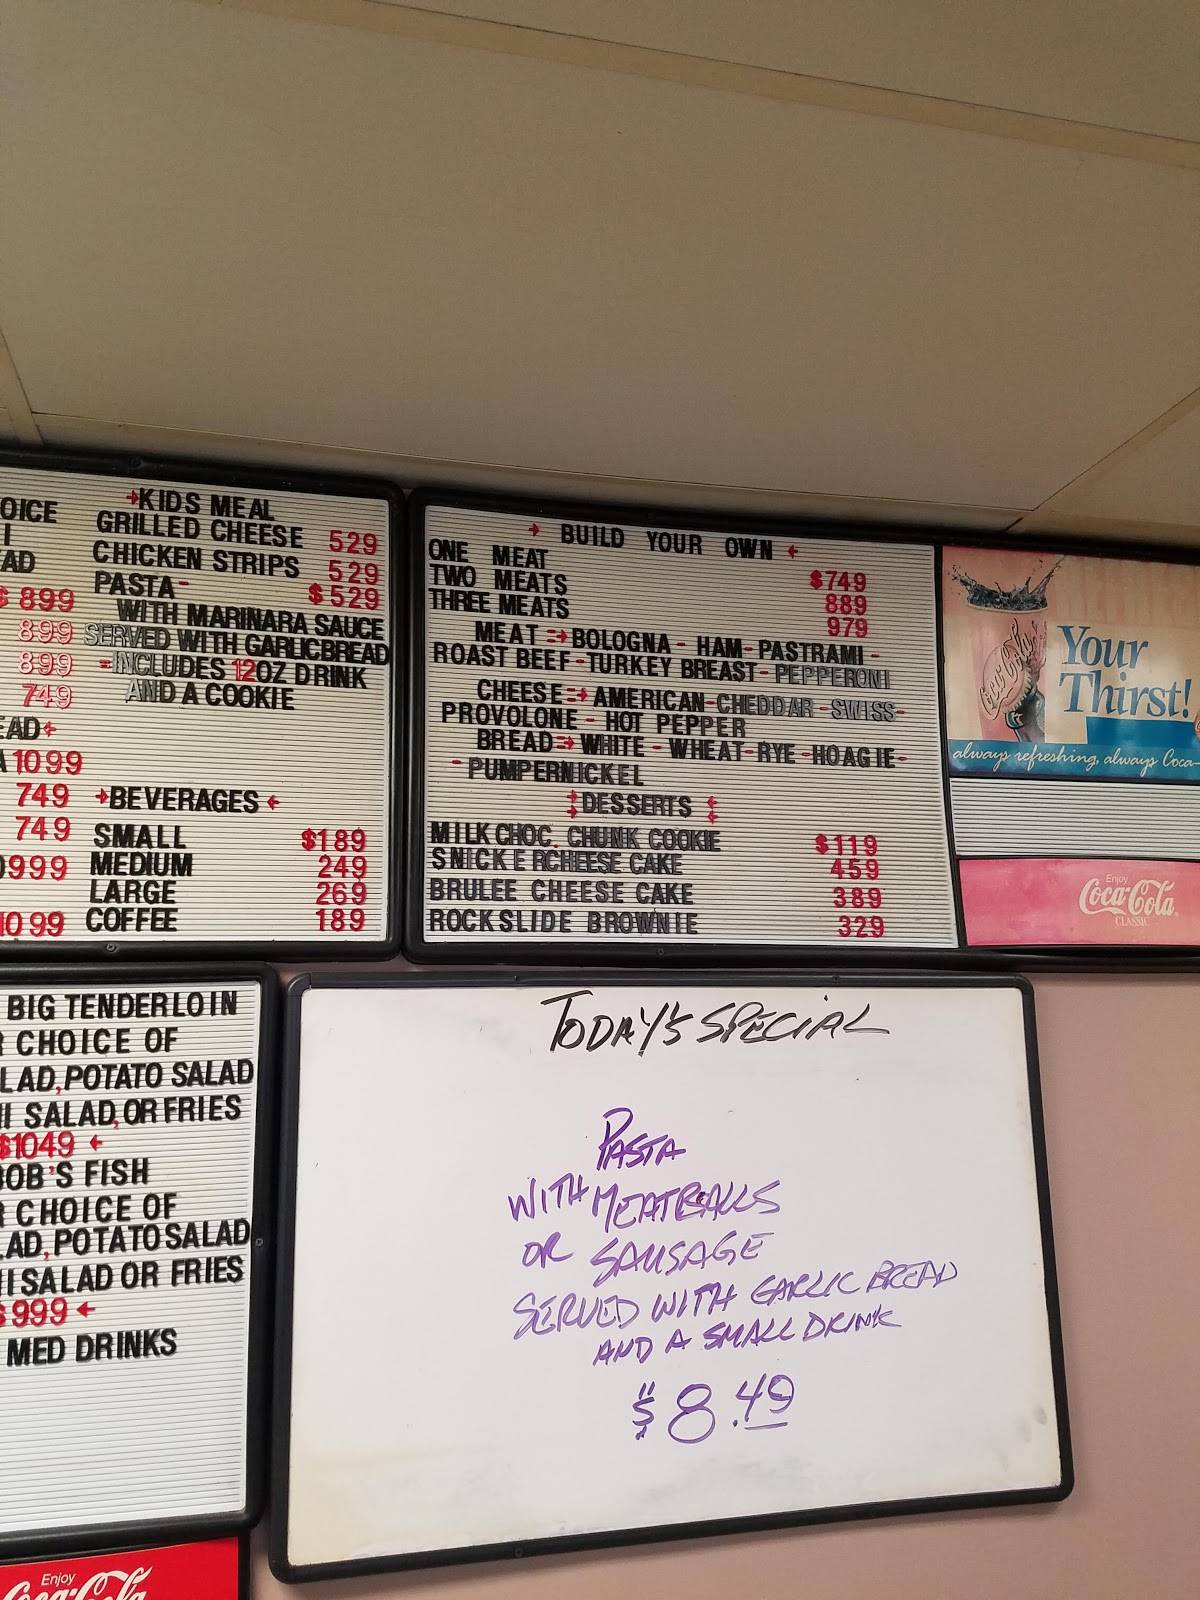 OICE
I
AD
$ 899
899
899
749
EAD
A 1099
749
749
0999
1099
KIDS MEAL
GRILLED CHEESE 529
CHICKEN STRIPS 529
PASTA- $529
WITH MARINARA SAUCE
SERVED WITH GARLICBREAD
-INCLUDES 12OZ DRINK
AND A COOKIE
BEVERAGES
SMALL $189
MEDIUM 249
LARGE 269
COFFEE 189
BUILD YOUR OWN
ONE MEAT $749
TWO MEATS 889
THREE MEATS 979
MEAT BOLOGNA - HAM - PASTRAMI -
ROAST BEEF - TURKEY BREAST - PEPPERONI
CHEESE AMERICAN - CHEDDAR - SWISS -
PROVOLONE - HOT PEPPER
BREAD WHITE - WHEAT - RYE - HOAGIE -
- PUMPERNICKEL
DESSERTS
MILK CHOC. CHUNK COOKIE $119
SNICKERCHEESE CAKE 459
BRULEE CHEESE CAKE 389
ROCKSLIDE BROWNIE 329
Your
Thirst!
always refreshing, always Coca-
Enjoy
Coca-Cola
CLASSIC
BIG TENDERLOIN
R CHOICE OF
LAD, POTATO SALAD
NI SALAD, OR FRIES
$1049
OB'S FISH
R CHOICE OF
LAD, POTATO SALAD
NI SALAD OR FRIES
$999
MED DRINKS
TODAY'S SPECIAL
PASTA
WITH MEATBALLS
OR SAUSAGE
SERVED WITH GARLIC BREAD
AND A SMALL DRINK
$8.49
Enjoy
Coca-Cola